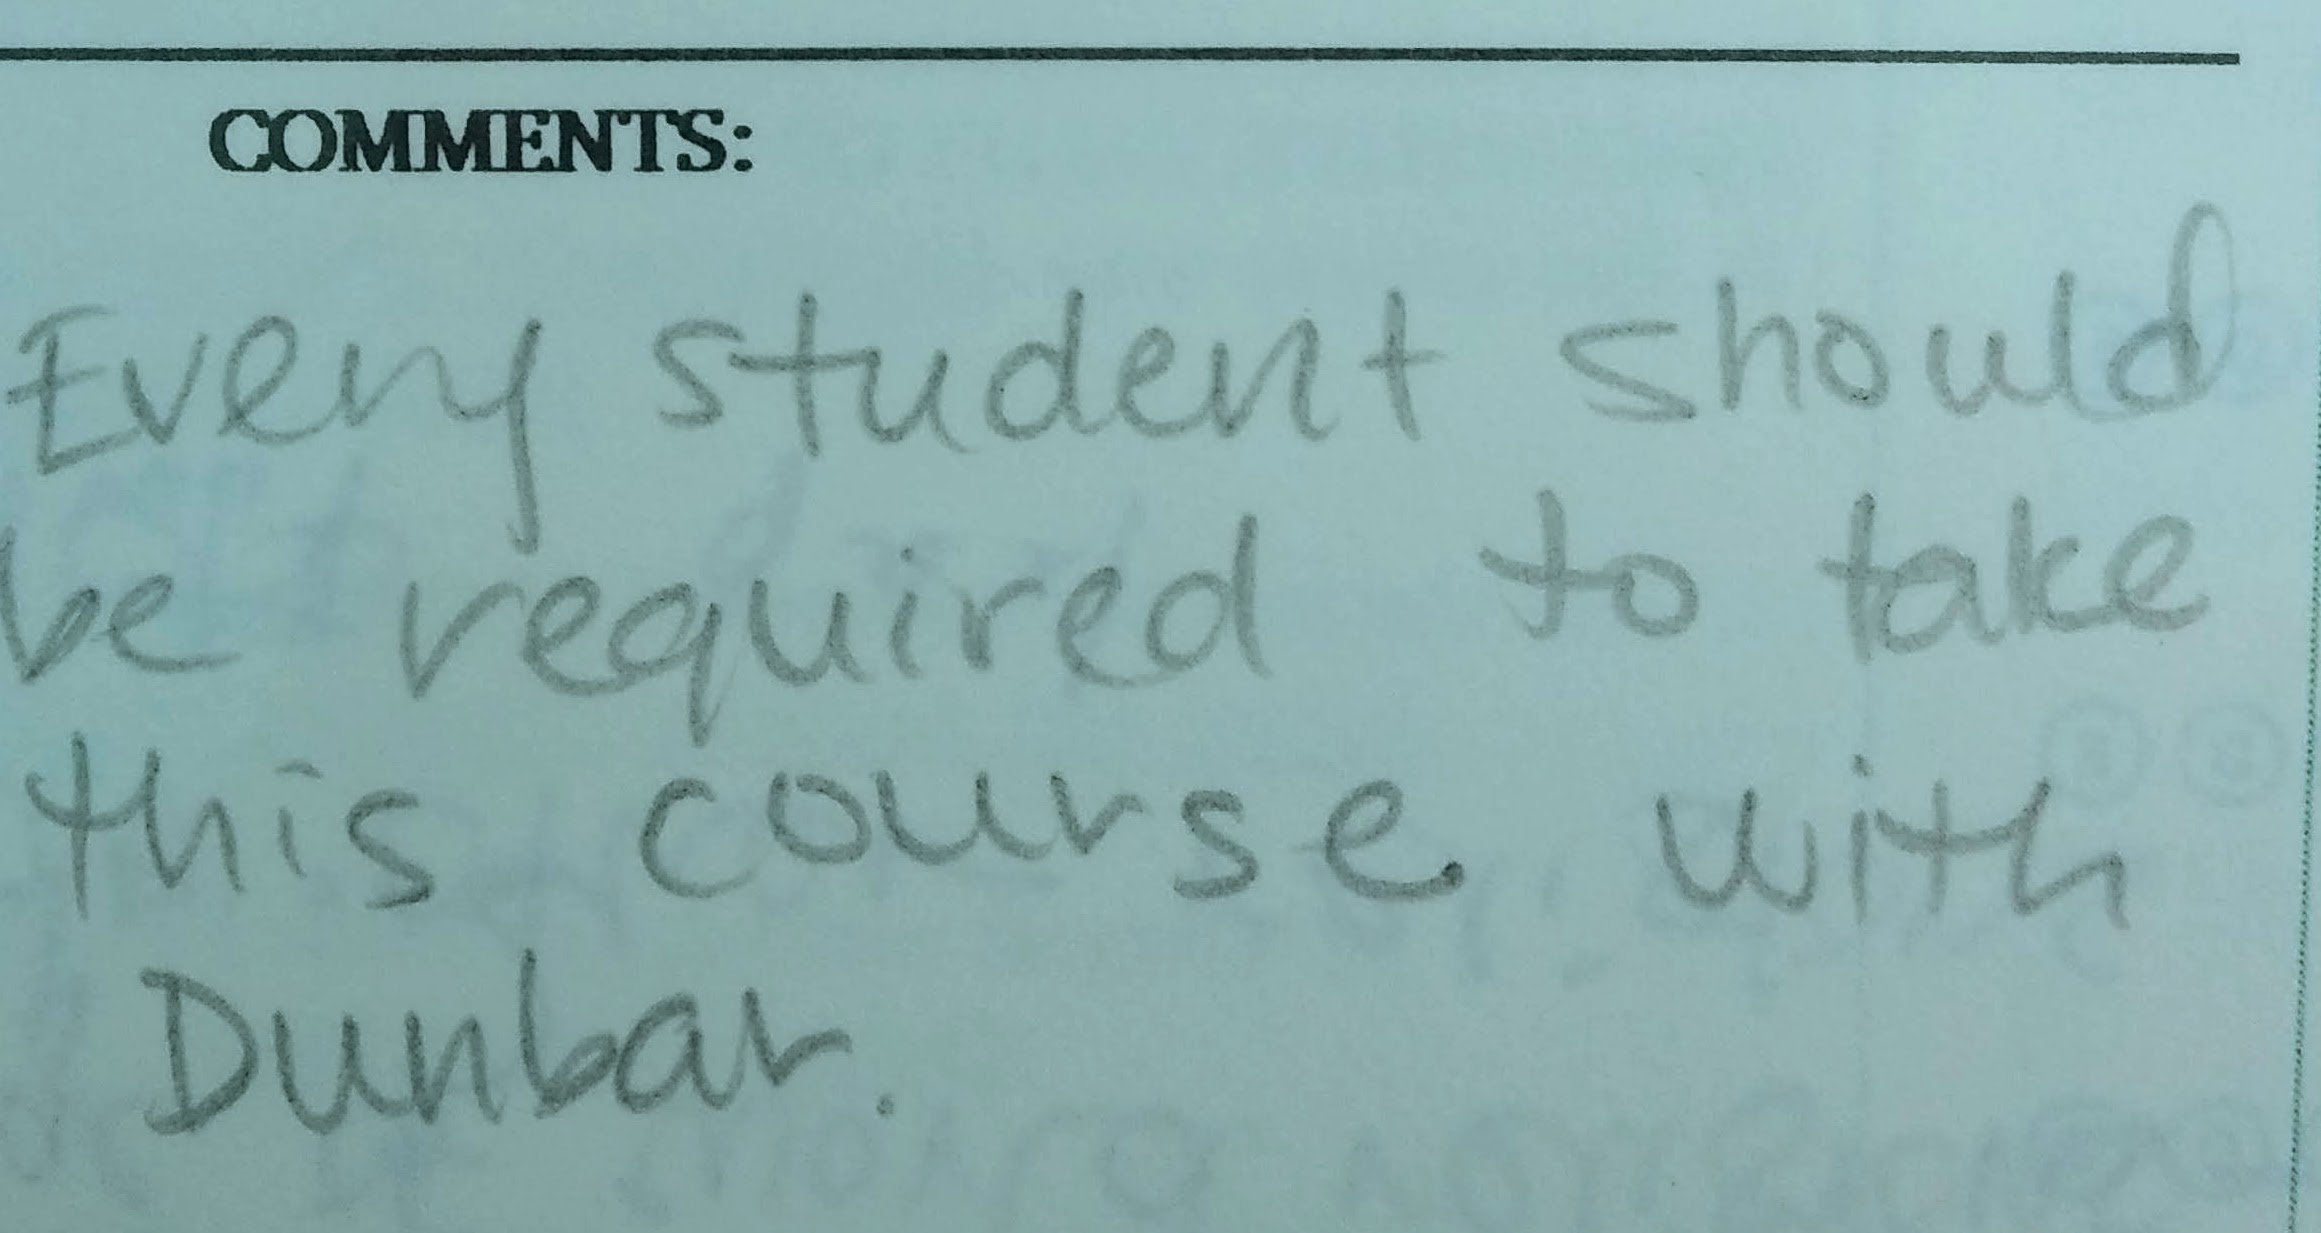 COMMENTS:
Every student should
be required to take
this course. with
Dunbar.